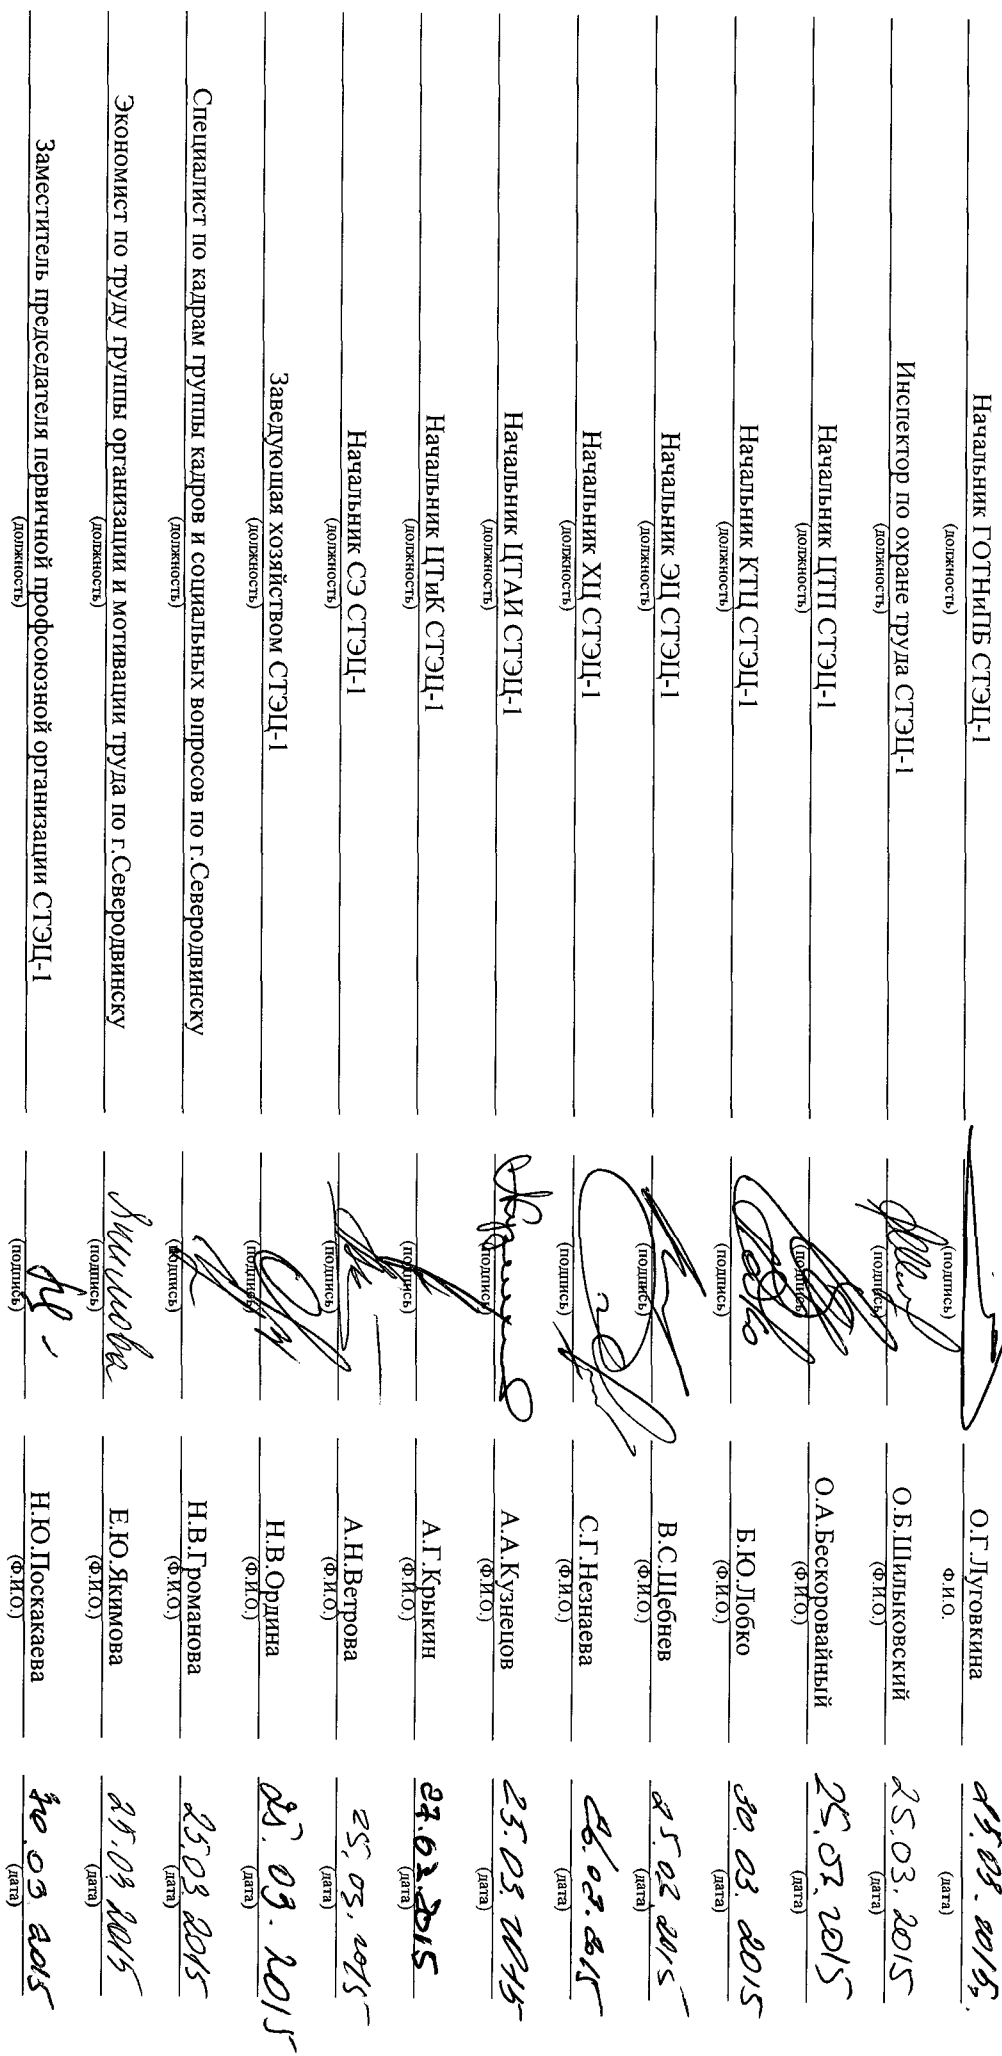 Начальник ГОТНиПБ СТЭЦ-1 О.Г.Луговкина 25.03.2015
(должность) (подпись) Ф.И.О. (дата)
Инспектор по охране труда СТЭЦ-1 О.Б.Шилыковский 25.03.2015
(должность) (подпись) (Ф.И.О.) (дата)
Начальник ЦТП СТЭЦ-1 О.А.Бескоровайный 25.03.2015
(должность) (подпись) (Ф.И.О.) (дата)
Начальник КТЦ СТЭЦ-1 Лобко Б.Ю.Лобко 30.03.2015
(должность) (подпись) (Ф.И.О.) (дата)
Начальник ЭЦ СТЭЦ-1 В.С.Щебнев 25.03.2015
(должность) (подпись) (Ф.И.О.) (дата)
Начальник ХЦ СТЭЦ-1 С.Г.Незнаева 26.03.2015
(должность) (подпись) (Ф.И.О.) (дата)
Начальник ЦТАИ СТЭЦ-1 А.А.Кузнецов 25.03.2015
(должность) (подпись) (Ф.И.О.) (дата)
Начальник ЦТиК СТЭЦ-1 А.Г.Крыкин 27.03.2015
(должность) (подпись) (Ф.И.О.) (дата)
Начальник СЭ СТЭЦ-1 А.Н.Ветрова 25.03.2015
(должность) (подпись) (Ф.И.О.) (дата)
Заведующая хозяйством СТЭЦ-1 Н.В.Ордина 25.03.2015
(должность) (подпись) (Ф.И.О.) (дата)
Специалист по кадрам группы кадров и социальных вопросов по г.Северодвинску Н.В.Громанова 25.03.2015
(должность) (подпись) (Ф.И.О.) (дата)
Экономист по труду группы организации и мотивации труда по г.Северодвинску Якимова Е.Ю.Якимова 25.03.2015
(должность) (подпись) (Ф.И.О.) (дата)
Заместитель председателя первичной профсоюзной организации СТЭЦ-1 Н.Ю.Поскакаева 30.03.2015
(должность) (подпись) (Ф.И.О.) (дата)